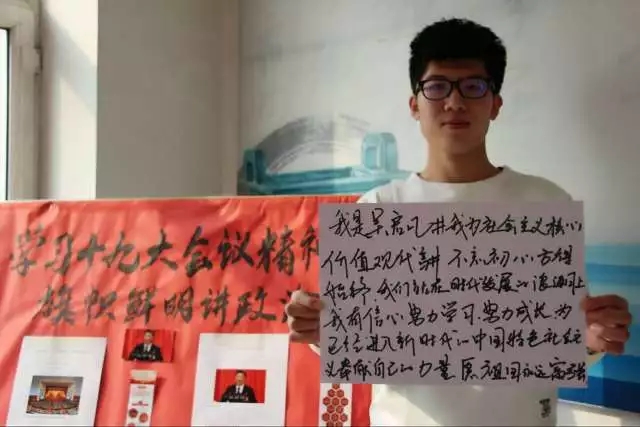 学习十九大会议精神
旗帜鲜明讲政
我是吴启凡 讲我为社会主义核心
价值观代言 不忘初心 方得
始终，我们站在时代发展的浪潮上
我有信心努力学习，努力成长，为
已经进入新时代的中国特色社会主
义贡献自己的力量 愿祖国永远富强